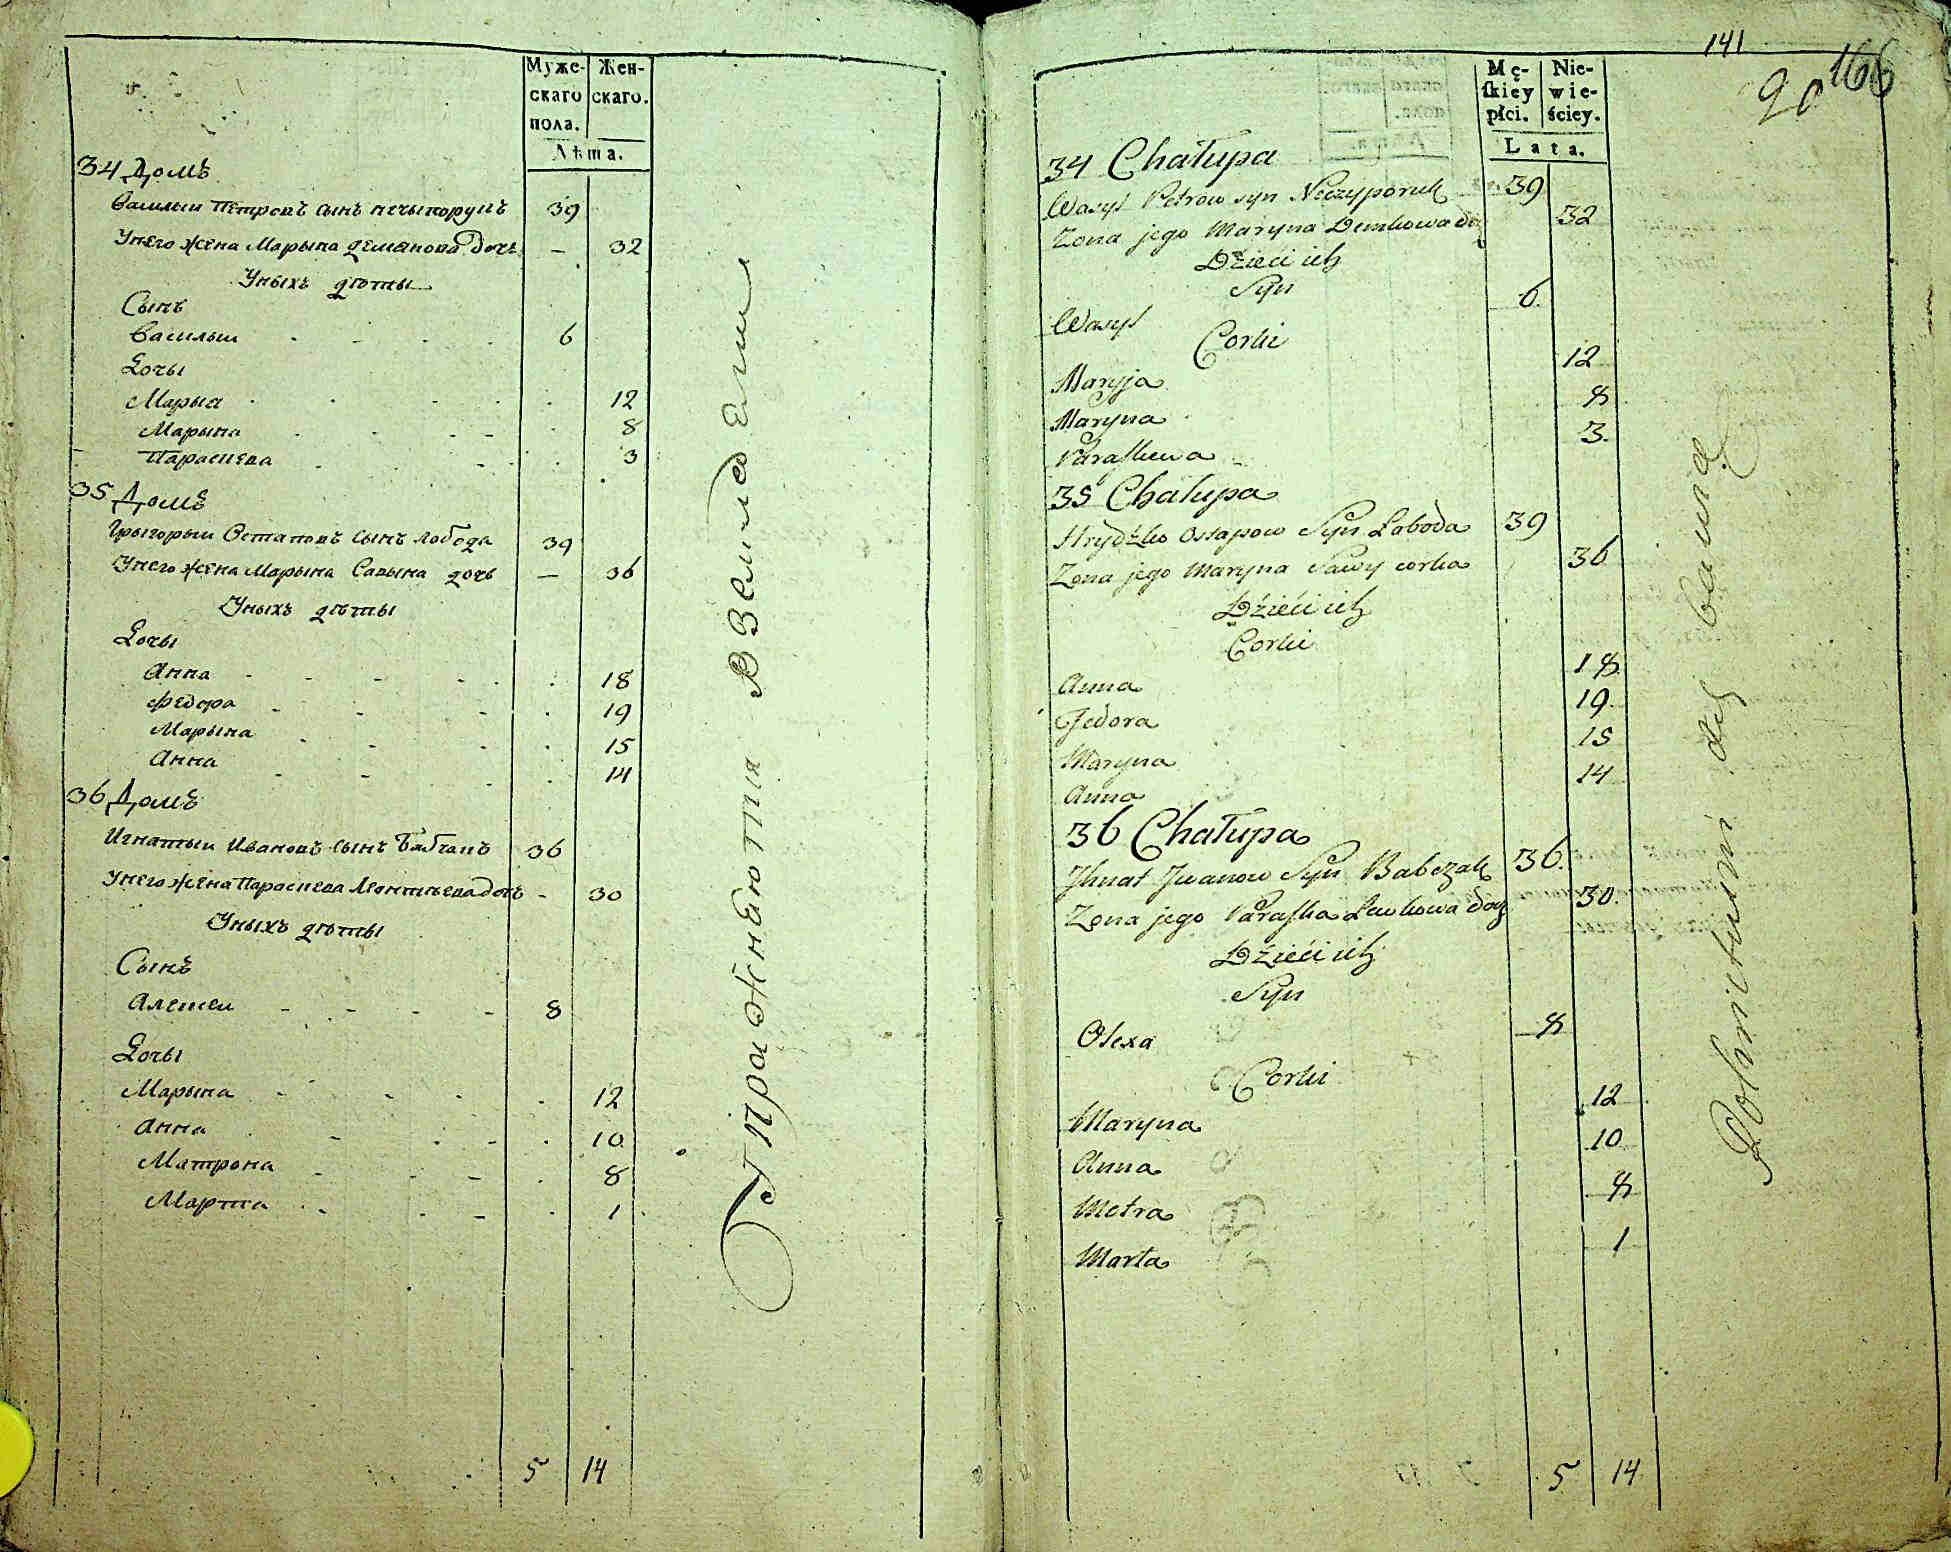 Муже- Жен-
скаго скаго.
пола.
Лѣта.
34 Домъ
Василии Петровъ сынъ нечыпорукъ 39
Унего жена Марына демянова дочь — 32
Уныхъ дѣты
Сынъ
Василии 6
Дочы
Марыа 12
Марына 8
Параскева 3
35 Домъ
Грыгорыи Остаповъ сынъ лобода 39
Унего жена Марына Савына дочь — 36
Уныхъ дѣты
Дочы
Анна 18
Федора 19
Марына 15
Анна 14
36 Домъ
Игнатыи Ивановъ сынъ Бабчакъ 36
Унего жена Параскева Леонтьева дочь - 30
Уныхъ дѣты
Сынъ
Алексеи 8
Дочы
Марына 12
Анна 10
Матрона 8
Марта 1
5 14
Упражняются в Земледелии
141
90 166
Mę- Nie-
ſkiey wie-
płci. ściey.
Lata.
34 Chałupa
Wasyl Petrow syn Neczyporuk 39
Zona jego Maryna Demkowa do 32
Dzieci ich
Syn
Wasyl 6.
Corki
Maryja 12
Maryna 8
Paraſkewa 3.
35 Chałupa
Hrydźko Ostapow Syn Łoboda 39
Zona jego Maryna Sawy corka 36
Dźieći ich
Corki
Anna 18
Fedora 19.
Maryna 15
Anna 14
36 Chałupa
Jhnat Jwanow Syn Babczak 36.
Zona jego Paraſka Lewkowa doch 30.
Dźieći ich
Syn
Olexa 8
Corki
Maryna 12
Anna 10
Motra 8
Marta 1
5 14
Rolnictwem się bawią